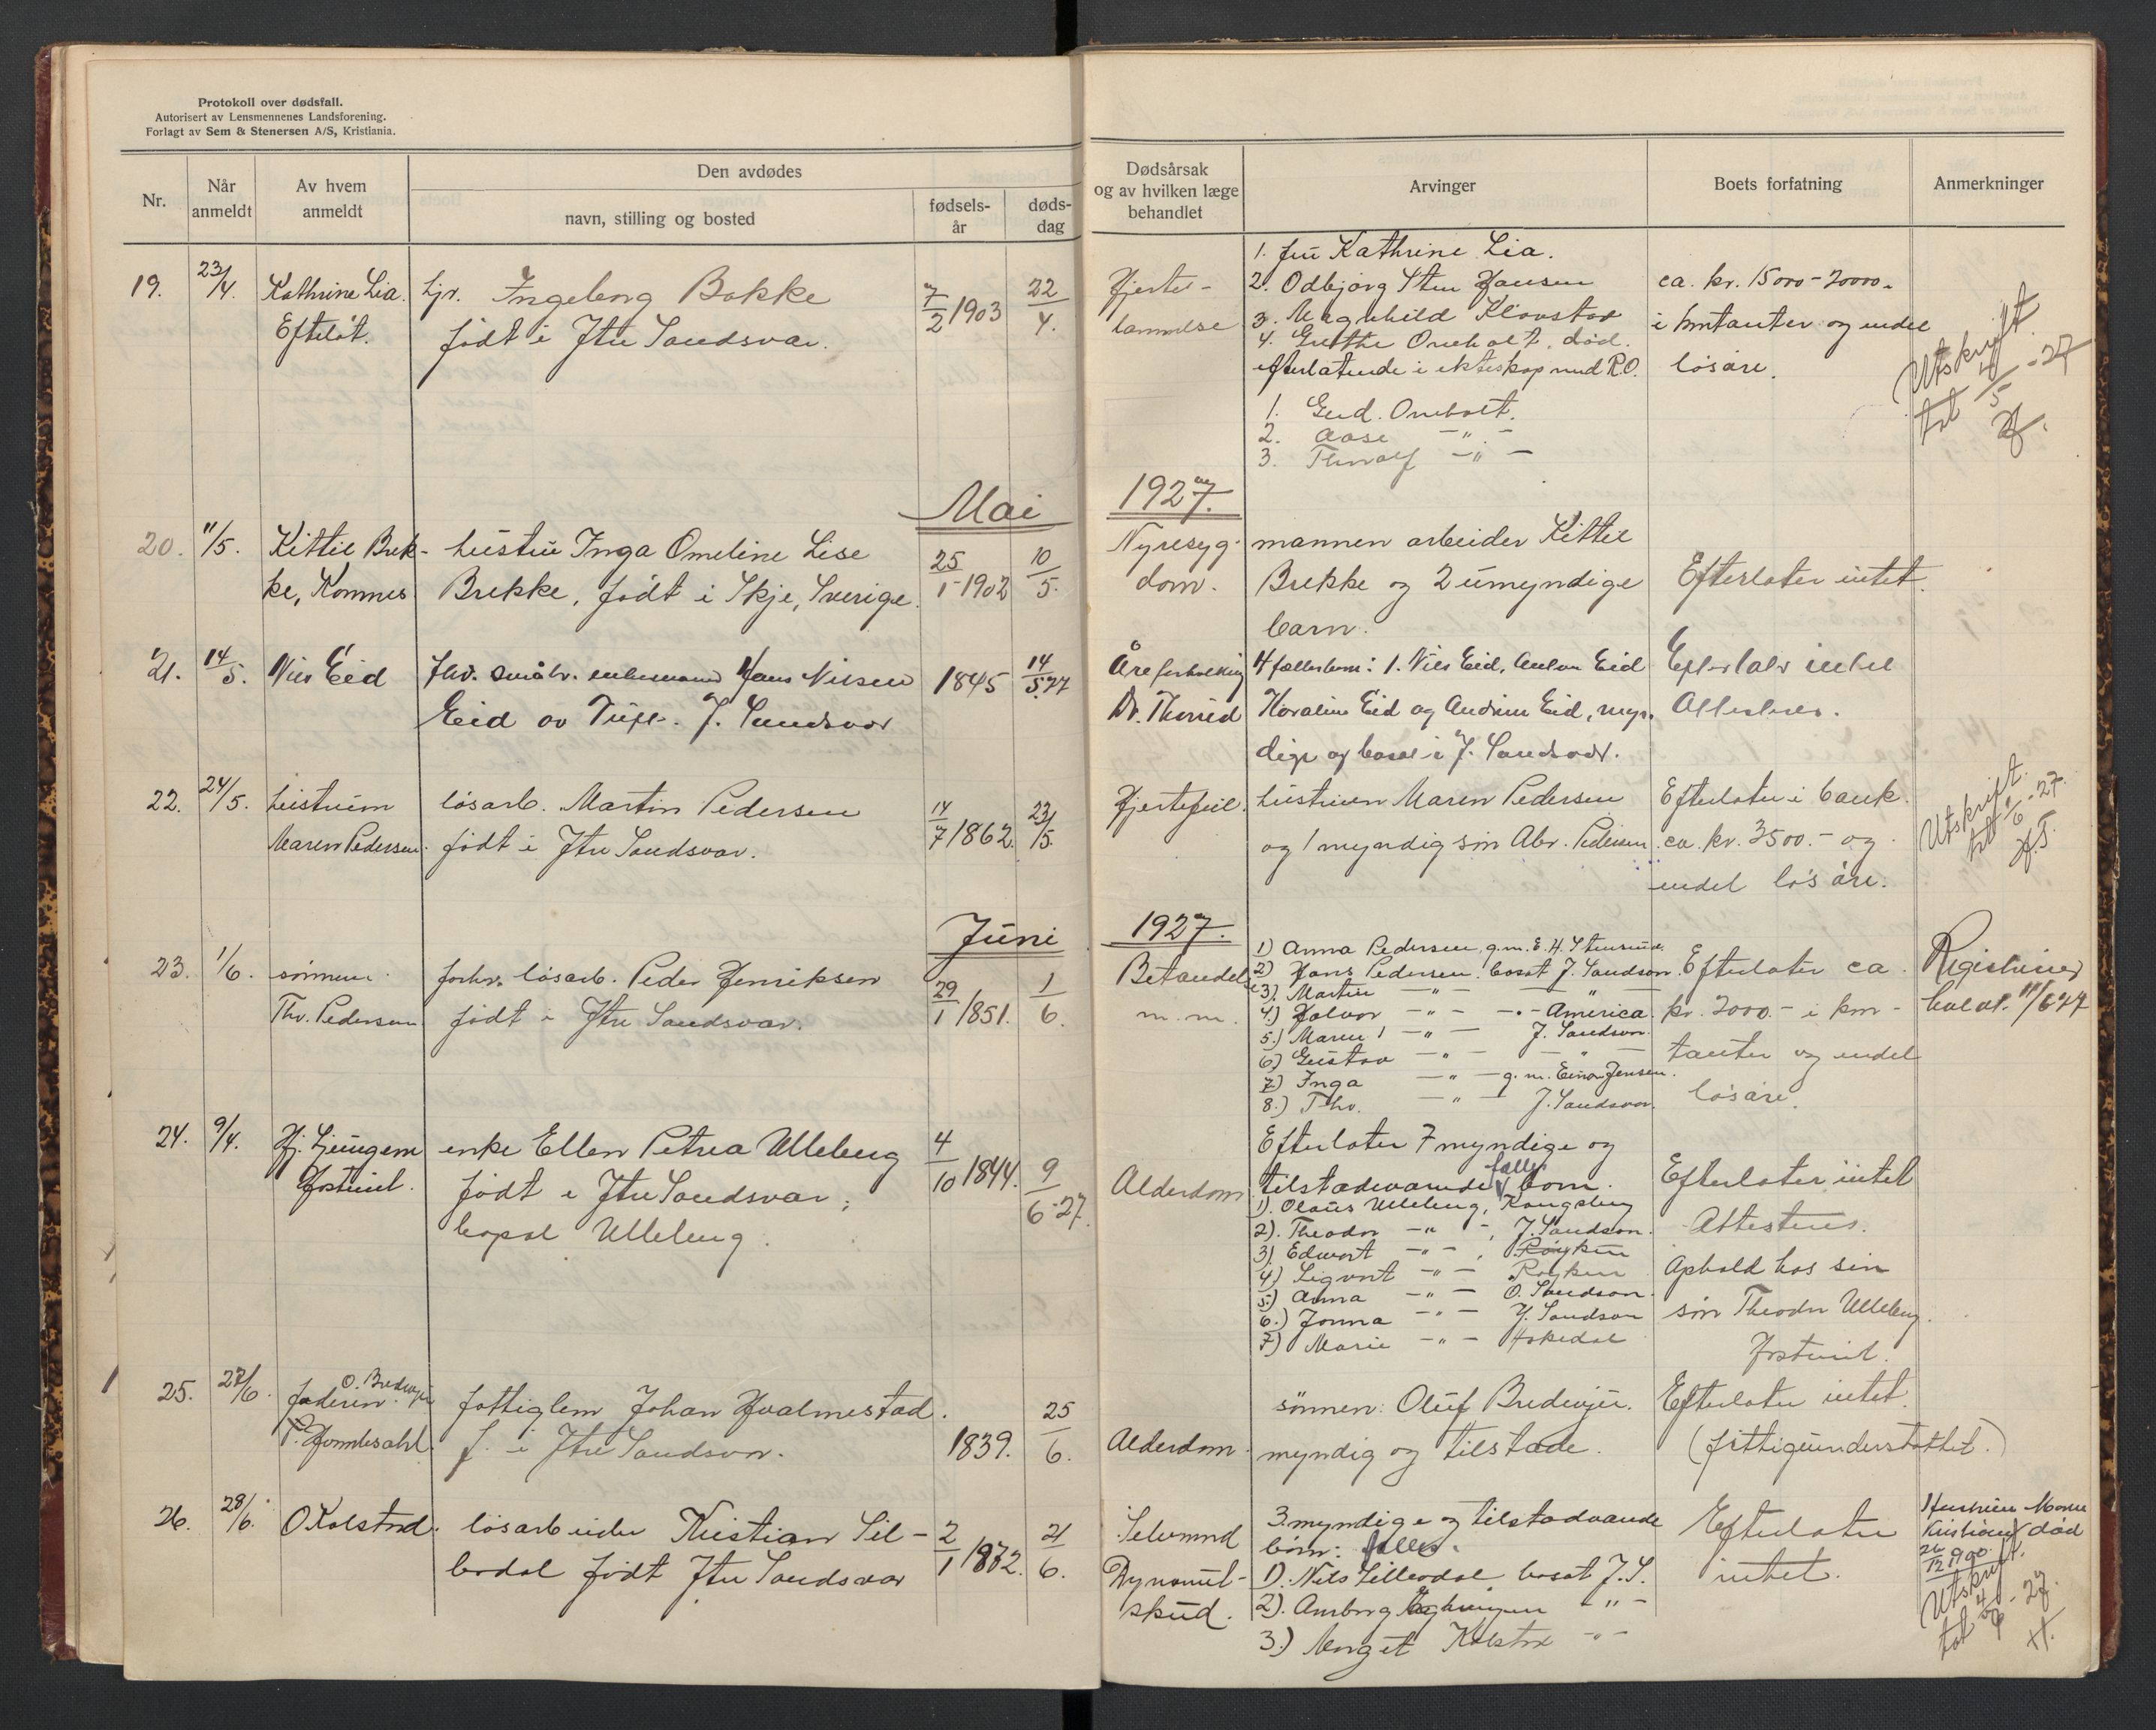 Protokoll over dødsfall.
Autorisert av Lensmennenes Landsforening.
Forlagt av Sem & Stenersen A/S, Kristiania.
Nr.
Når anmeldt
Av hvem anmeldt
Den avdødes
navn, stilling og bosted
fødsels-år
døds-dag
Dødsårsak og av hvilken læge behandlet
Arvinger
Boets forfatning
Anmerkninger
19. 23/4. Kathrine Lia. Ingeborg Bakke 7/2 1903 22/4.
Efteløt. født i Ytre Sandsvær.
Hjerte-
lammelse
1. fru Kathrine Lia.
2. Odbjørg Hansen
3. Magnhild Klovstad
4. Grethe Oneholt, død.
efterlatende i ekteskap med R.O.
1. Gud. Oneholt.
2. Aase -"-
3. Thoralf -"-
ca. kr. 15000-20000.-
i kontanter og endel
løsøre.
Utskrift
tat 4/5-27
Mai 1927.
20. 11/5. Kittil Brek- hustru Inga Omeline Lise 25/1-1902 10/5.
ke, Komnes Brekke, født i Skje, Sverige.
Nyresyg-
dom.
mannen arbeider Kittil
Brekke og 2 umyndige
barn.
Efterlater intet.
21. 14/5. Nils Eid fhv. småbr. enkemand Hans Nilsen 1845 14/5.27
Eid av J. Sandsvær
Åreforkalkning
Dr. Thorud
4 fællesbarn: 1. Nils Eid, Anton Eid
Karoline Eid og Eid, myn-
dige og bosat i J. Sandsvær.
Efterlater intet
Attesteres.
22. 24/5. hustruen løsarb. Martin Pedersen 14/7 1862. 23/5.
Maren Pedersen. født i Ytre Sandsvær.
Hjertefeil.
hustruen Maren Pedersen
og 1 myndig søn Abr. Pedersen
Efterlater i bank
ca. kr. 3500.- og
endel løsøre.
Utskrift
tat /6-27.
Juni 1927.
23. 1/6. sønnen forhv. løsarb. Peder Henriksen 29/1 1851. 1/6.
Thv. Pedersen født i Ytre Sandsvær.
Betændelse
m.m.
1) Anna Pedersen, g.m. E. H.
2) Hans Pedersen, bosat J. Sandsvær.
3) Martin -"- -"-
4.) Halvor -"- America.
5.) Maren -"- J. Sandsvær.
6) Gustav -"- -"-
7) Inga -"- g.m. Einar Jensen.
8.) Thv. -"- J. Sandsvær.
Efterlater ca.
kr. 2000.- i kon-
tanter og endel
løsøre.
Registrering
holdt. 11/6 27
24. 9/4. Hj. Ljungem enke Ellen Petrea Ulleberg 4/10 1844. 9/6-27.
født i Ytre Sandsvær,
bopæl Ulleberg.
Alderdom
Efterlater 7 myndige og
tilstedeværende fælles barn.
1). Olaus Ulleberg, Kongsberg
2). Theodor -"-, J. Sandsvær.
3) Edvart -"-, Røyken
4) Sigvart -"- Røyken
5) Anna -"- Ø. Sandsvær.
6.) Jonna -"- Y. Sandsvær
7) Marie -"- Hakedal
Efterlater intet
Attesteres.
Ophold hos sin
søn Theodor Ulleberg.
25. 27/6. O. Bredvejen fattiglem Johan Hvalmestad. 1839. 25/6.
f. i Ytre Sandsvær.
Alderdom.
sønnen: Oluf Bredvejen.
myndig og tilstede.
Efterlater intet.
(fattigunderstøttet.)
26. 28/6. O Kolstad. løsarbeider Kristian Lil- 2/1 1872. 21/6.
lerdal født Ytre Sandsvær
Selvmord
Dynamit-
skud.
3 myndige og tilstedværende
børn: fælles.
1). Nils Lillerdal, bosat J.S.
2). Ansborg -"-
3.) Marget Kolstad -"-
Efterlater
intet.
Hustruen Maren
Kristiane død
26/12 1900.
Utskrift.
tat 4/6-27.